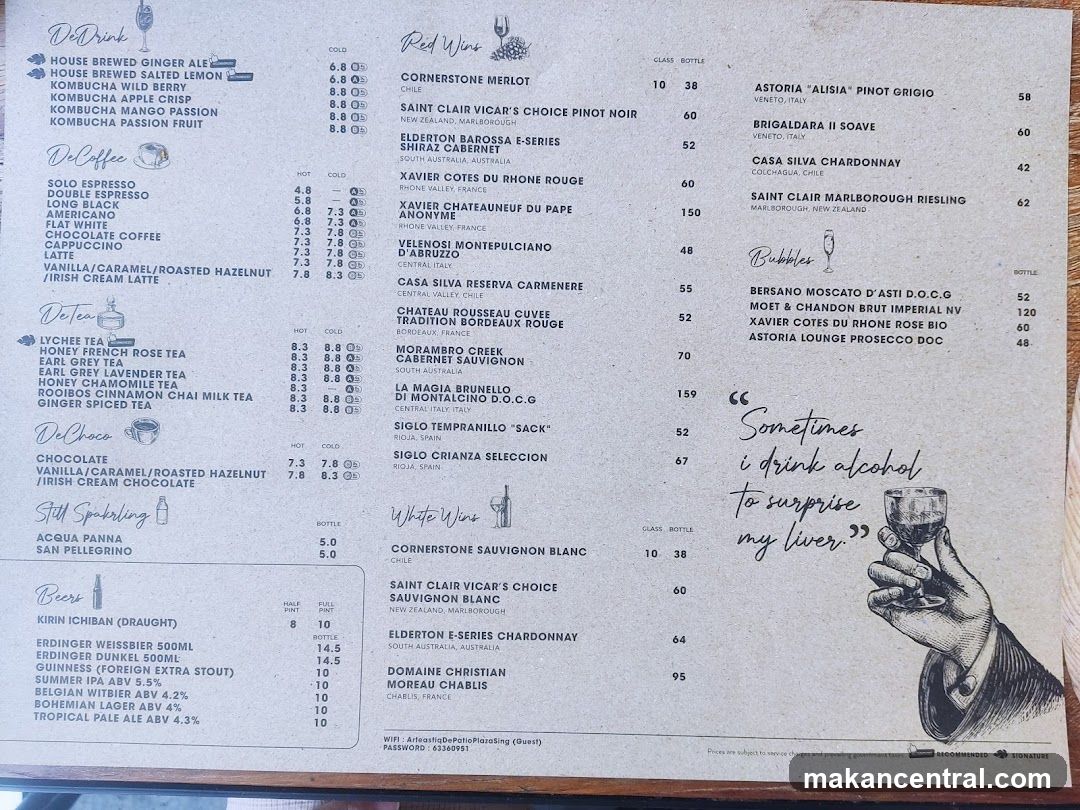 DeDrink
COLD
HOUSE BREWED GINGER ALE 6.8
HOUSE BREWED SALTED LEMON 6.8
KOMBUCHA WILD BERRY 8.8
KOMBUCHA APPLE CRISP 8.8
KOMBUCHA MANGO PASSION 8.8
KOMBUCHA PASSION FRUIT 8.8
DeCoffee
HOT COLD
SOLO ESPRESSO 4.8 —
DOUBLE ESPRESSO 5.8 —
LONG BLACK 6.8 7.3
AMERICANO 6.8 7.3
FLAT WHITE 7.3 7.8
CHOCOLATE COFFEE 7.3 7.8
CAPPUCCINO 7.3 7.8
LATTE 7.3 7.8
VANILLA/CARAMEL/ROASTED HAZELNUT 7.8 8.3
/IRISH CREAM LATTE
DeTea
HOT COLD
LYCHEE TEA 8.3 8.8
HONEY FRENCH ROSE TEA 8.3 8.8
EARL GREY TEA 8.3 8.8
EARL GREY LAVENDER TEA 8.3 8.8
HONEY CHAMOMILE TEA 8.3 —
ROOIBOS CINNAMON CHAI MILK TEA 8.3 8.8
GINGER SPICED TEA 8.3 8.8
DeChoco
HOT COLD
CHOCOLATE 7.3 7.8
VANILLA/CARAMEL/ROASTED HAZELNUT 7.8 8.3
/IRISH CREAM CHOCOLATE
Still Spakrling
BOTTLE
ACQUA PANNA 5.0
SAN PELLEGRINO 5.0
Beers
HALF PINT FULL PINT
KIRIN ICHIBAN (DRAUGHT) 8 10
BOTTLE
ERDINGER WEISSBIER 500ML 14.5
ERDINGER DUNKEL 500ML 14.5
GUINNESS (FOREIGN EXTRA STOUT) 10
SUMMER IPA ABV 5.5% 10
BELGIAN WITBIER ABV 4.2% 10
BOHEMIAN LAGER ABV 4% 10
TROPICAL PALE ALE ABV 4.3% 10
Red Wins
GLASS BOTTLE
CORNERSTONE MERLOT 10 38
CHILE
SAINT CLAIR VICAR'S CHOICE PINOT NOIR 60
NEW ZEALAND, MARLBOROUGH
ELDERTON BAROSSA E-SERIES
SHIRAZ CABERNET 52
SOUTH AUSTRALIA, AUSTRALIA
XAVIER COTES DU RHONE ROUGE 60
RHONE VALLEY, FRANCE
XAVIER CHATEAUNEUF DU PAPE
ANONYME 150
RHONE VALLEY, FRANCE
VELENOSI MONTEPULCIANO
D'ABRUZZO 48
CENTRAL ITALY
CASA SILVA RESERVA CARMENERE 55
CENTRAL VALLEY, CHILE
CHATEAU ROUSSEAU CUVEE
TRADITION BORDEAUX ROUGE 52
BORDEAUX, FRANCE
MORAMBRO CREEK
CABERNET SAUVIGNON 70
SOUTH AUSTRALIA
LA MAGIA BRUNELLO
DI MONTALCINO D.O.C.G 159
CENTRAL ITALY, ITALY
SIGLO TEMPRANILLO "SACK" 52
RIOJA, SPAIN
SIGLO CRIANZA SELECCION 67
RIOJA, SPAIN
White Wins
GLASS BOTTLE
CORNERSTONE SAUVIGNON BLANC 10 38
CHILE
SAINT CLAIR VICAR'S CHOICE
SAUVIGNON BLANC 60
NEW ZEALAND, MARLBOROUGH
ELDERTON E-SERIES CHARDONNAY 64
SOUTH AUSTRALIA, AUSTRALIA
DOMAINE CHRISTIAN
MOREAU CHABLIS 95
CHABLIS, FRANCE
WIFI : ArteastiqDePatioPlazaSing (Guest)
PASSWORD : 63360951
ASTORIA "ALISIA" PINOT GRIGIO 58
VENETO, ITALY
BRIGALDARA II SOAVE 60
VENETO, ITALY
CASA SILVA CHARDONNAY 42
COLCHAGUA, CHILE
SAINT CLAIR MARLBOROUGH RIESLING 62
MARLBOROUGH, NEW ZEALAND
Bubbles
BOTTLE
BERSANO MOSCATO D'ASTI D.O.C.G 52
MOET & CHANDON BRUT IMPERIAL NV 120
XAVIER COTES DU RHONE ROSE BIO 60
ASTORIA LOUNGE PROSECCO DOC 48
“Sometimes
i drink alcohol
to surprise
my liver.”
Prices are subject to service charges and prevailing government taxes
RECOMMENDED SIGNATURE
makancentral.com